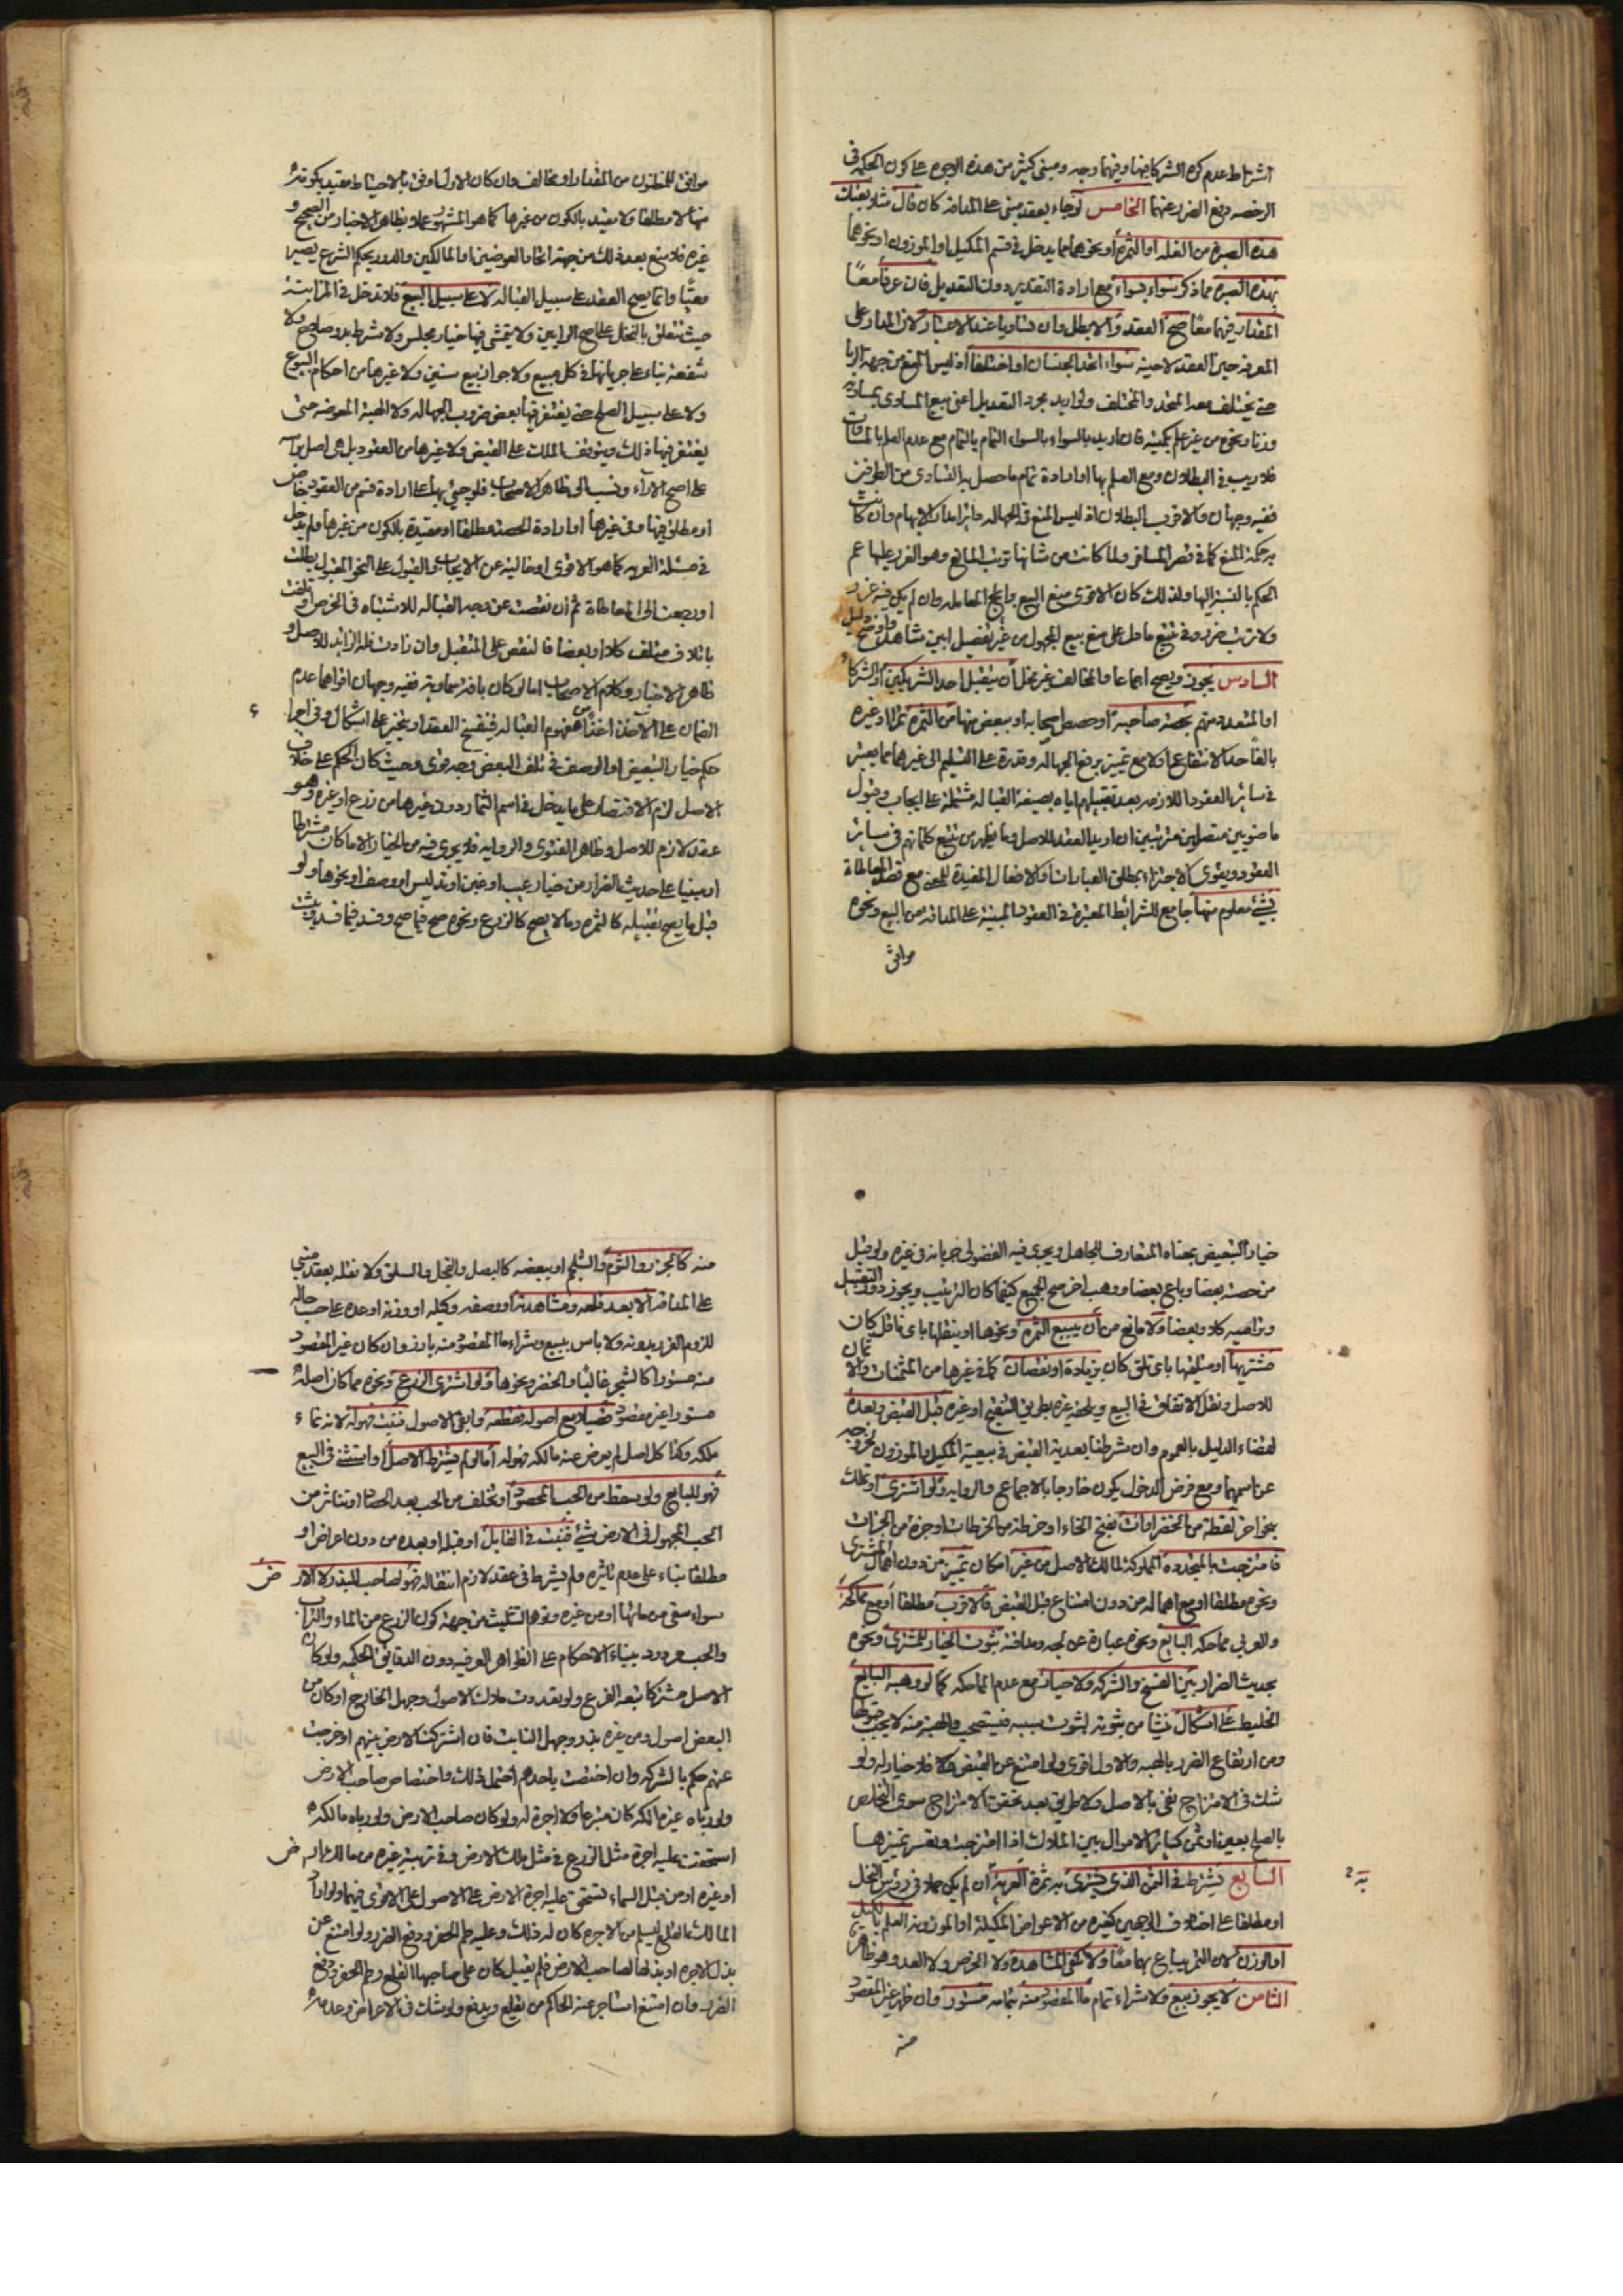 اشراط عدم كون الشركا فيها وفيهما وجه ومبنى كثير من هذه الوجوه على كون الحكمة في
الرخصه دفع الضرر عنهما الخامس لو جاء بعقد مبنى على المداقه كان قال مثلا بعتك
هذه الصبرة من الغله او الثمرة او نحوهما مما يدخل في قسم المكيل او الموزون او نحوهما
بهذه الصبره مما ذكر سواء بسواء مع ارادة التقدير دون التعديل فان عرفا معا
المقدار فيهما معا صح العقد والا بطل وان تساويا عند الاعتبار لان المدار على
المعرفه حين العقد لا حينه سواء اتحد الجنسان او اختلفا اذ ليس المنع من جهة الربا
حتى يختلف معه المتحد والمختلف ولو اريد مجرد التعديل اعنى بيع المساوى بمساويه
وزنا ونحوه من غير علم بكميته فان اريد بالسواء بالسواء التمام بالتمام مع عدم العلم بالمساوات
فلا ريب في البطلان ومع العلم بها او ارادة تمام ما حصل به التساوى من الطرفين
ففيه وجهان والاقرب البطلان اذ ليس المنع في الجهاله دائرا مدار الابهام وان كانت
به حكمة المنع كما في قصر المسافر ولما كانت من شانها ترتب المانع وهو الغرر عليها عم
الحكم بالنسبة اليها ولذلك كان الاقوى منع البيع وباقى المعامله وان لم يكن فيه غرر
ولا ترتب ضرر وفي تتبع ما دل على منع بيع المجهول من غير تفصيل ابين شاهد واوضح دليل
السادس يجوز ويصح اجماعا والمخالف غير مخل ان يتقبل احد الشريكين او الشركاء
او المتعدد منهم بحصة صاحبه او حصص اصحابه او ببعض منها من الثمره ثمرا او غيره
بالغا حد الانتفاع او لا مع تمييز يرفع الجهاله وقدرة على التسليم الى غيرهما مما يعتبر
في سائر العقود اللازمه بعد تقبيلهم اياه بصيغة القباله مشتملة على ايجاب وقبول
ماضويين متصلين مترتبين ان اريد العقد للاصل وما يظهر من تتبع كلماتهم في سائر
العقود ويقوى الاجتزاء بمطلق العبارات والافعال المفيدة للمعنى مع قصد المعاطاة
بشئ معلوم منها جامع للشرائط المعتبرة في العقود المبنية على المداقه من البيع ونحوه
موافق
موافق للمظنون من المقدار او مخالف وان كان الاول اوفق بالاحتياط مقيد بكونه
منها لا مطلقا ولا مقيد بالكون من غيرها كما هو المشهور عملا بظاهر الاخبار من الصحيح و
غيره فلا منع بعد ذلك من جهة اتحاد العوضين او المالكين والدور بحكم الشرع يصير
معيبا وانما يصح العقد على سبيل القباله لا على سبيل البيع فلا تدخل في المزابنة
حيث تتعلق بالنخل على اصح الرايين ولا يتمشى فيها خيار مجلس ولا شرط بدو صلاح ولا
شفعة بناء على جريانها في كل مبيع ولا جواز بيع سنين ولا غيرها من احكام البيوع
ولا على سبيل الصلح حتى يغتفر فيها بعض ضروب الجهاله ولا الهبة المعوضه حتى
يغتفر فيها ذلك ويتوقف الملك على القبض ولا غيرها من العقود بل هى اصل براسه
على اصح الآراء ونسب الى ظاهر الاصحاب فلو جئ بها على ارادة قسم من العقود خاص
او مطلق فيها وفي غيرها او ارادة الحصة مطلقا او مقيدة بالكون من غيرها ولم يدخل
في مسئلة العريه كما هو الاقوى او خاليه عن الايجاب والقبول على النحو المقبول بطلت
او رجعت الى المعاطاة ثم ان نقصت عن وجه القباله للاشتباه في الخرص او تلفت
باتلاف متلف كلا او بعضا فالنقص على المتقبل وان زادت فله الزائد للاصل و
ظاهر الاخبار وكلام الاصحاب اما لو كان بآفة سماوية ففيه وجهان اقواهما عدم
الضمان على الآخذ اخذا من مفهوم القباله فينفسخ العقد او يتخير على اشكال وفي اجراء
حكم خيار التبعيض او الوصف في تلف البعض وجه قوى وحيث كان الحكم على خلاف
الاصل لزم الاقتصار على ما يدخل في اسم الثمار دون غيرها من زرع او غيره وهو
عقد لازم للاصل وظاهر الفتوى والروايه فلا يجرى فيه من الخيار الا ما كان مشترطا
او مبنيا على حديث الضرار من خيار عيب او غبن او تدليس او وصف او نحوها ولو
قبل ما يصح تقبيله كالثمره وما لا يصح كالزرع ونحوه صح فيما صح وفسد فيما فسد ويثبت
خيار التبعيض بمعناه المتعارف للجاهل ويجرى فيه الفضولى جريانه في غيره ولو قبل
من حصته بعضا وباع بعضا ووهب اخر صح الجميع كيفما كان الترتيب ويجوز دور التقبيل
وتراميه كلا وبعضا ولا مانع من ان يبيع الثمرة ونحوها او ينقلها باى ناقل كان
مشتريها او متلقيها باى تلق كان بزيادة او نقصان كما في غيرها من المثمنات والاثمان
للاصل ونقل الاتفاق في البيع ويلحقه غيره بطريق التنقيح او غيره قبل القبض وبعده
لقضاء الدليل بالعموم وان شرطنا بعدية القبض في بيعية المكيل والموزون لخروجه
عن اسمهما ومع فرض الدخول يكون خارجا بالاجماع والروايه ولو اشترى او تملك
بنحو اخر لقطة من الخضراوات بفتح الخاء او خرطة من الخرطات او جزة من الجزات
فامتزجت بالمتجدده المملوكة لمالك الاصل من غير امكان تمييز من دون اهمال المشترى
ونحوه مطلقا او مع اهماله من دون امتناع قبل القبض فالاقرب مطلقا او مع مماحكة
وللعربى مماحكه البايع ونحوه عبارة عن لجه ومداقته ثبوت الخيار للمشترى ونحوه
بحديث الضرار بين الفسخ والشركه ولا خيار مع عدم المماحكه كما لو وهبه البايع
الخليط على اشكال ينشأ من ثبوته لثبوت سببه فيستصحب والهبة منه لا يجب قبولها
ومن ارتفاع الضرر بالهبه والاول اقوى ولو امتنع عن القبض فلا خيار له ولو
شك في الامتزاج نفى بالاصل ولا طريق بعد تحقق الامتزاج سوى التخلص
بالصلح بعين او ثمن كسائر الاموال بين الملاك اذا امتزجت وتعسر تمييزها
السابع يشترط في الثمن الذى يشترى به ثمرة العرية ان لم يكن حملا في رؤس النخل
او مطلقا على اختلاف الوجهين كغيره من الاعواض المكيلة او الموزونه العلم بالكيل
او الوزن لان التمر يباع بهما معا ولا تكفى المشاهدة ولا الخرص ولا العد وهو ظاهر
الثامن لا يجوز بيع ولا شراء تمام ما المقصود منه بتمامه مستور وان ظهر غير المقصود
منه
منه كالجزر والثوم والشلجم او ببعضه كالبصل والفجل والسلق ولا نقله بعقد مبنى
على المداقه الا بعد قلعه ومشاهدته او وصفه وكيله او وزنه او عده على حسب حاله
للزوم الغرر بدونه ولا باس ببيع وشراء ما المقصود منه بارز وان كان غير المقصود
منه مستورا كالشجر غالبا والخضر ونحوها ولو اشترى الزرع ونحوه مما كان اصله
مستورا غير مقصود قصيلا مع اصوله فقطعه وابقى الاصول فنبت فهو له لانه نماء
ملكه وكذا كل اصل لم يعرض عنه مالكه فهو له اما لو لم يشترط الاصل او استثنى في البيع
فهو للبايع ولو سقط من الحب المحصود او تخلف من الحب بعد الحصاد او تناثر من
الحب المجهول في الارض شئ فنبت في القابل او قبله او بعده من دون اعراض او
مطلقا بناء على عدم تاثيره ولم يشترط في عقد لازم انتقاله فهو لصاحب البذر لا الارض
سواء سقى من مائها او من غيره وتوهم التثليث من جهة كون الزرع من الماء والتراب
والحب مردود ببناء الاحكام على الظواهر العرفيه دون الدقايق الحكميه ولو كان
الاصل مشتركا تبعه الفرع ولو تعددت ملاك الاصول وجهل الخارج او كان من
البعض اصول ومن غيره بذر وجهل النابت فان اشتركت الارض بينهم او خرجت
عنهم حكم بالشركه وان اختصت باحدهم احتمل ذلك واختصاص صاحب الارض
ولو رباه غير مالكه كان متبرعا ولا اجرة له ولو كان صاحب الارض ولو رباه مالكه
استحقت عليه اجرة مثل الزرع في مثل ملك الارض وفي تربية غيره من مالك الارض
او غيره او من قبل السماء تستحق عليه اجرة الارض على الاصول على الاقوى فيهما ولو اراد
المالك القلع ليسلم من الاجره كان له ذلك وعليه طم الحفر ودفع الضرر ولو امتنع عن
بذل الاجره او بذلها لصاحب الارض فلم يقبل كان على صاحبها القلع وطم الحفر ودفع
الضرر وان امتنع استاجر عنه الحاكم من يقلع ويدفع ولو شك في الاعراض وعدمه